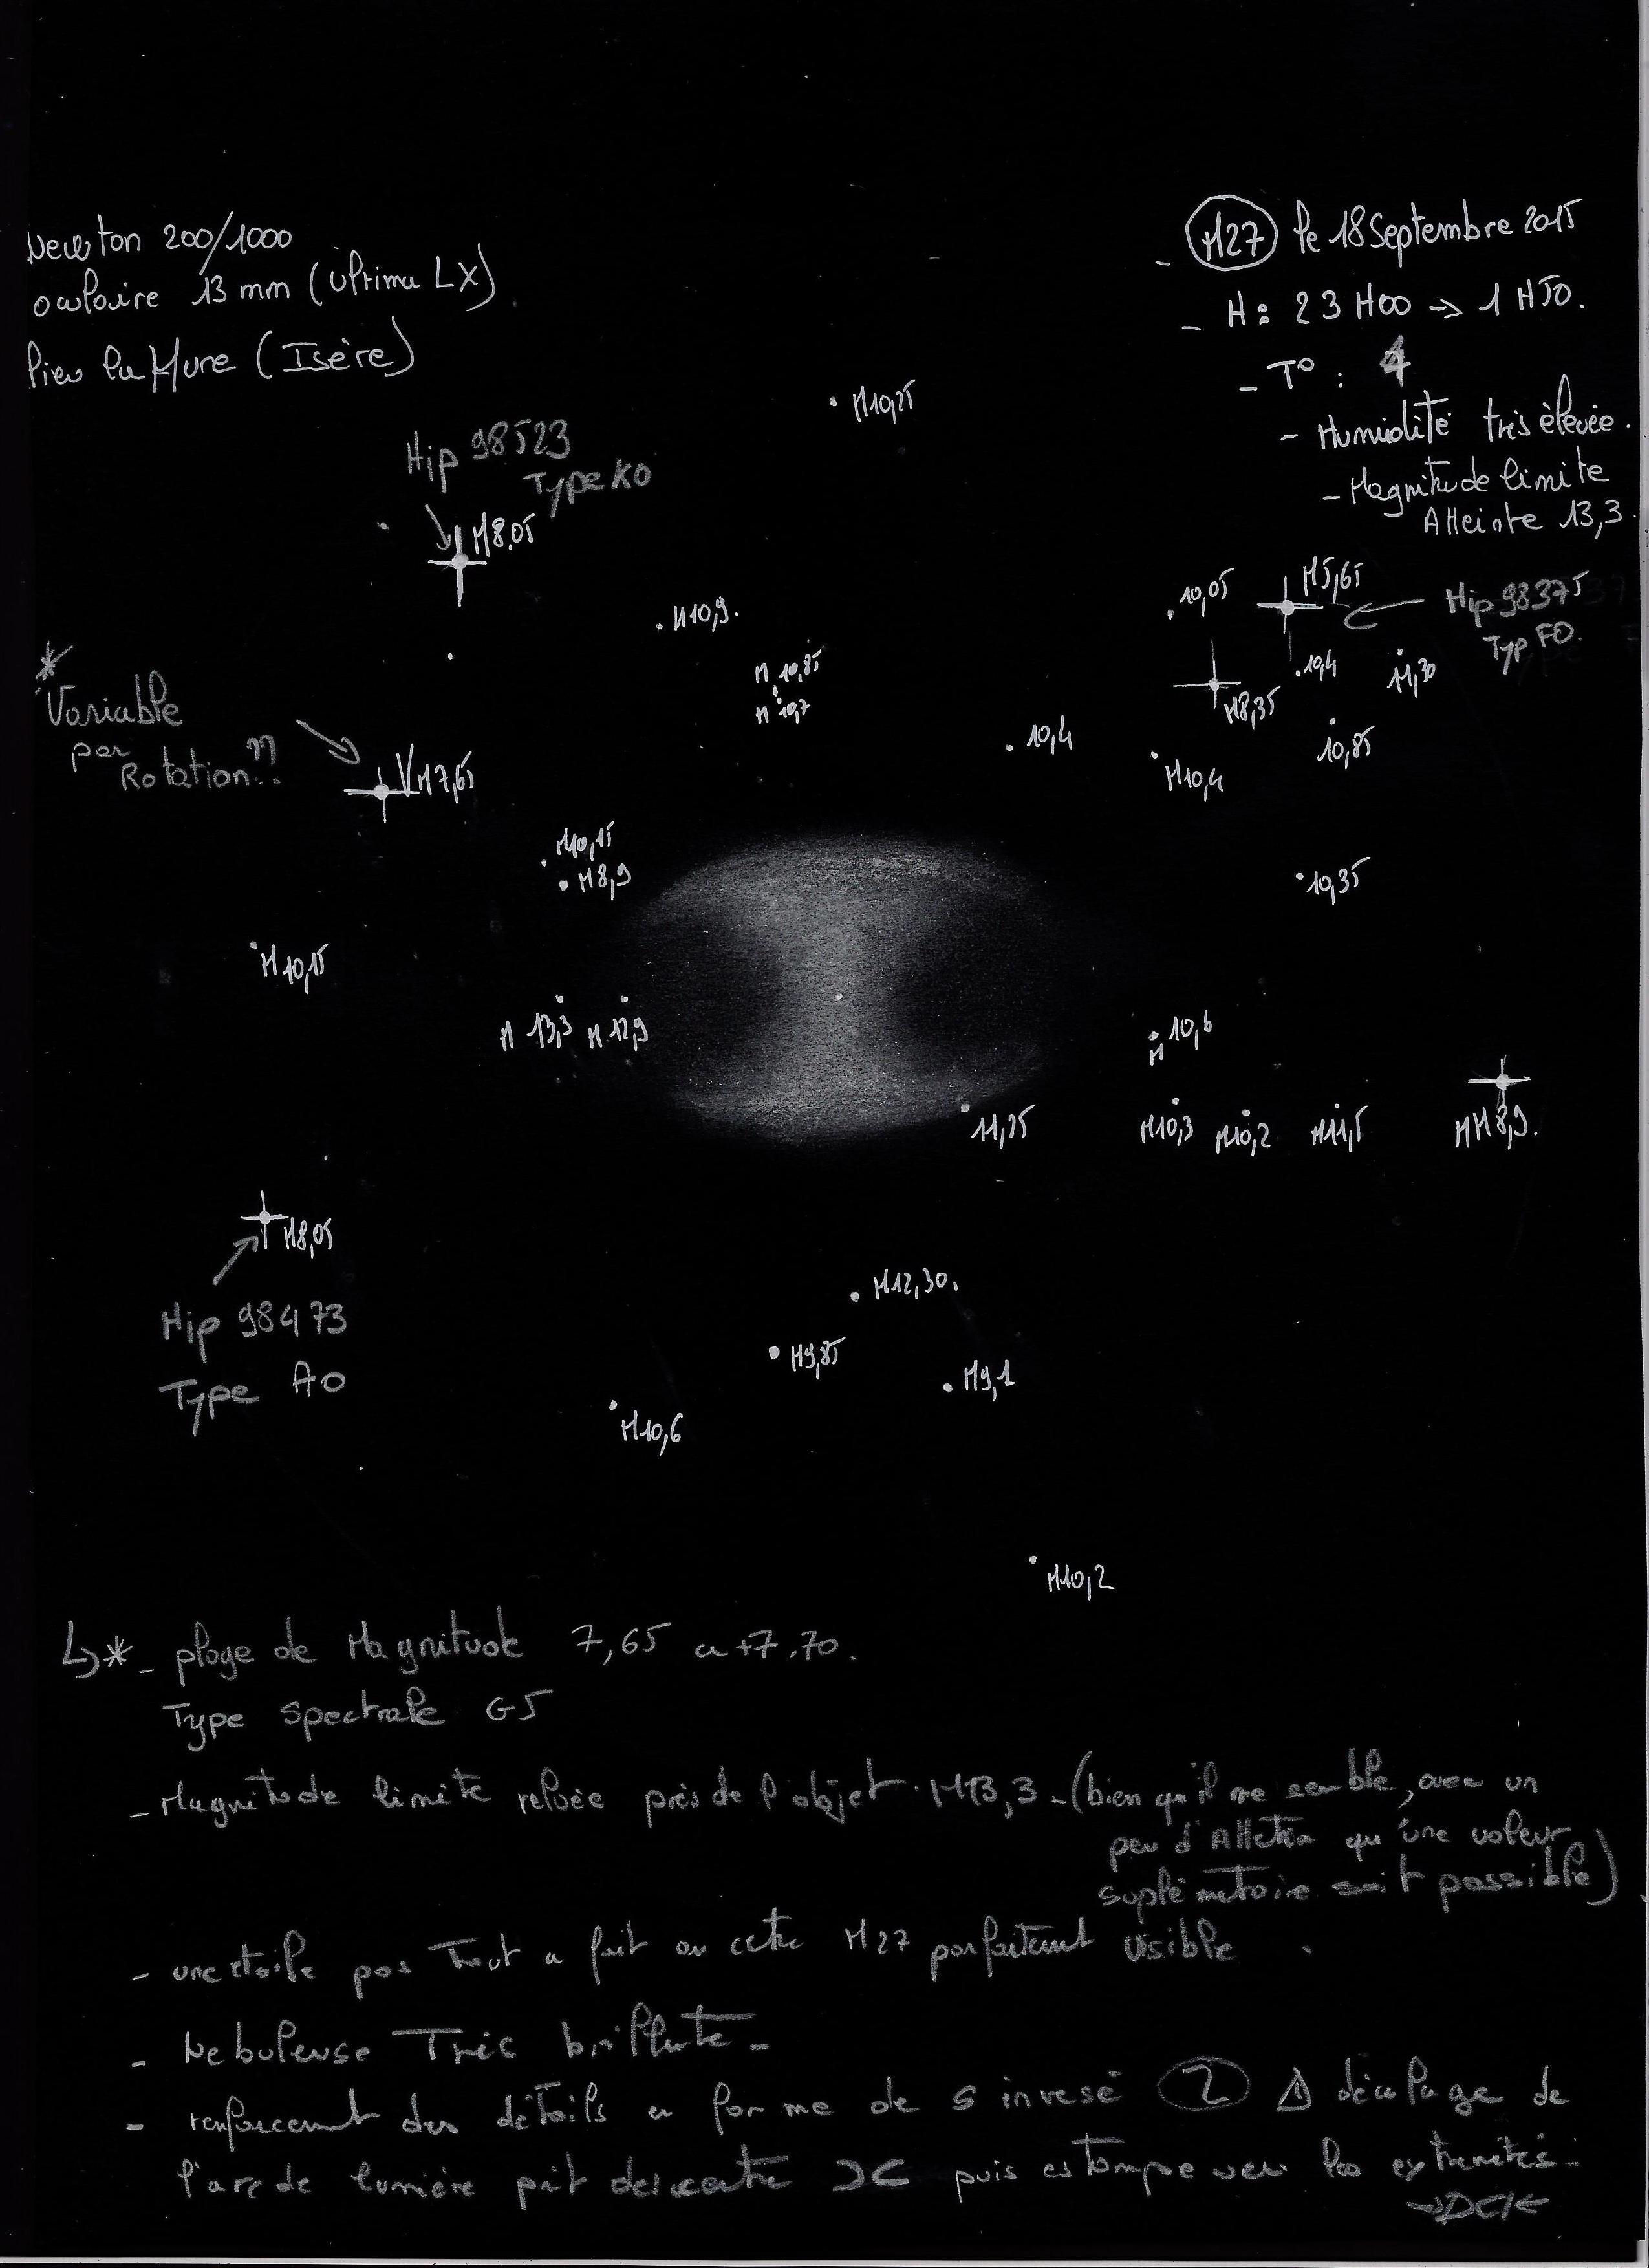 Newton 200/1000
oculaire 13 mm (ultima LX)
lieu la Mure (Isère)
- M27 le 18 Septembre 2015
- H: 23 H00 → 1 H50.
- T° : 4
- Humidité très élevée.
- Magnitude limite
Atteinte 13,3
M10,25
Hip 98523
Type K0
M8.05
10,05
M5,65
Hip 98375
Typ F0.
M10,9.
M 10,85
M 10,7
10,4
11,30
M8,35
10,85
*
Variable
par
Rotation ??
M7,65
10,4
M10,4
M10,15
M8,9
10,35
M10,15
M 13,3
M 12,9
M 10,6
11,25
M10,3
M10,2
M11,5
MM8,9.
M8,05
Hip 98473
Type A0
M12,30.
M9,85
M9,1
M10,6
M10,2
↳* - plage de Magnitude 7,65 a +7.70.
Type spectrale G5
- Magnitude limite relvée près de l'objet. M13,3 - (bien qu'il me semble, avec un
peu d' qu'une valeur
soit possible)
- une etoile pas Tout a fait au M27 visible
- Nebuleuse Très
- des détails en forme de S 2 de
l'arc de lumière puis estompe vers les extremités.